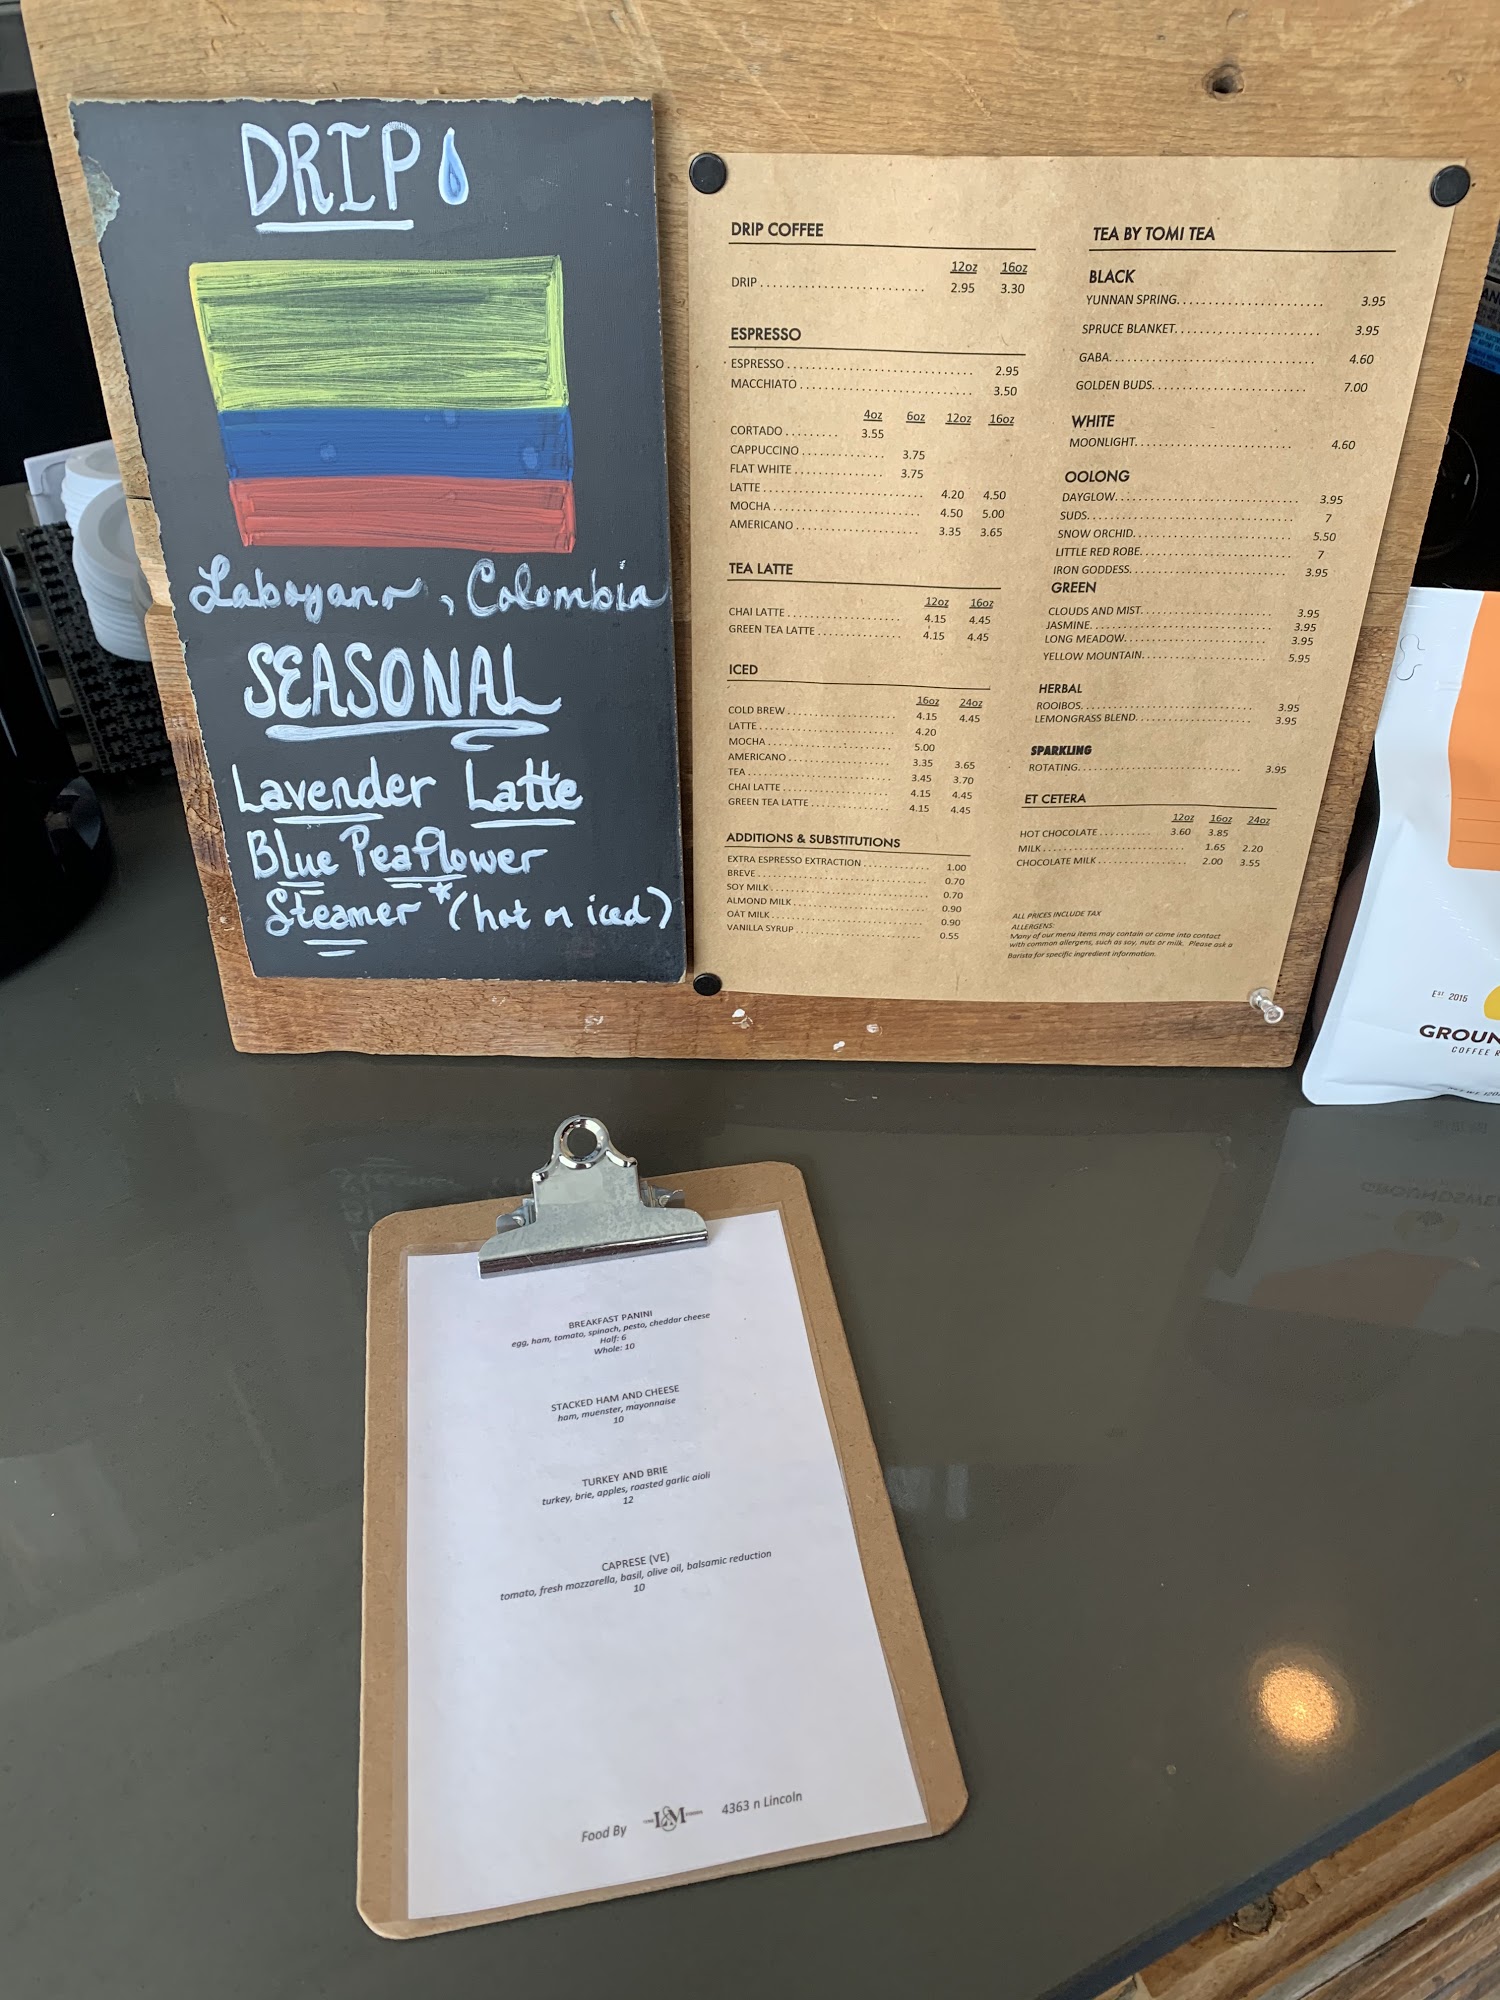 DRIP
Laboyano, Colombia
SEASONAL
Lavender Latte
Blue Peaflower
Steamer *(hot or iced)
DRIP COFFEE
12oz 16oz
DRIP 2.95 3.30
ESPRESSO
ESPRESSO 2.95
MACCHIATO 3.50
4oz 6oz 12oz 16oz
CORTADO 3.55
CAPPUCCINO 3.75
FLAT WHITE 3.75
LATTE 4.20 4.50
MOCHA 4.50 5.00
AMERICANO 3.35 3.65
TEA LATTE
12oz 16oz
CHAI LATTE 4.15 4.45
GREEN TEA LATTE 4.15 4.45
ICED
16oz 24oz
COLD BREW 4.15 4.45
LATTE 4.20
MOCHA 5.00
AMERICANO 3.35 3.65
TEA 3.45 3.70
CHAI LATTE 4.15 4.45
GREEN TEA LATTE 4.15 4.45
ADDITIONS & SUBSTITUTIONS
EXTRA ESPRESSO EXTRACTION 1.00
BREVE 0.70
SOY MILK 0.70
ALMOND MILK 0.90
OAT MILK 0.90
VANILLA SYRUP 0.55
TEA BY TOMI TEA
BLACK
YUNNAN SPRING 3.95
SPRUCE BLANKET 3.95
GABA 4.60
GOLDEN BUDS 7.00
WHITE
MOONLIGHT 4.60
OOLONG
DAYGLOW 3.95
SUDS 7
SNOW ORCHID 5.50
LITTLE RED ROBE 7
IRON GODDESS 3.95
GREEN
CLOUDS AND MIST 3.95
JASMINE 3.95
LONG MEADOW 3.95
YELLOW MOUNTAIN 5.95
HERBAL
ROOIBOS 3.95
LEMONGRASS BLEND 3.95
SPARKLING
ROTATING 3.95
ET CETERA
12oz 16oz 24oz
HOT CHOCOLATE 3.60 3.85
MILK 1.65 2.20
CHOCOLATE MILK 2.00 3.55
ALL PRICES INCLUDE TAX
ALLERGENS:
Many of our menu items may contain or come into contact
with common allergens, such as soy, nuts or milk. Please ask a
Barista for specific ingredient information.
EST 2016
GROUN
COFFEE R
BREAKFAST PANINI
egg, ham, tomato, spinach, pesto, cheddar cheese
Half: 6
Whole: 10
STACKED HAM AND CHEESE
ham, muenster, mayonnaise
10
TURKEY AND BRIE
turkey, brie, apples, roasted garlic aioli
12
CAPRESE (VE)
tomato, fresh mozzarella, basil, olive oil, balsamic reduction
10
Food By L&M 4363 n Lincoln